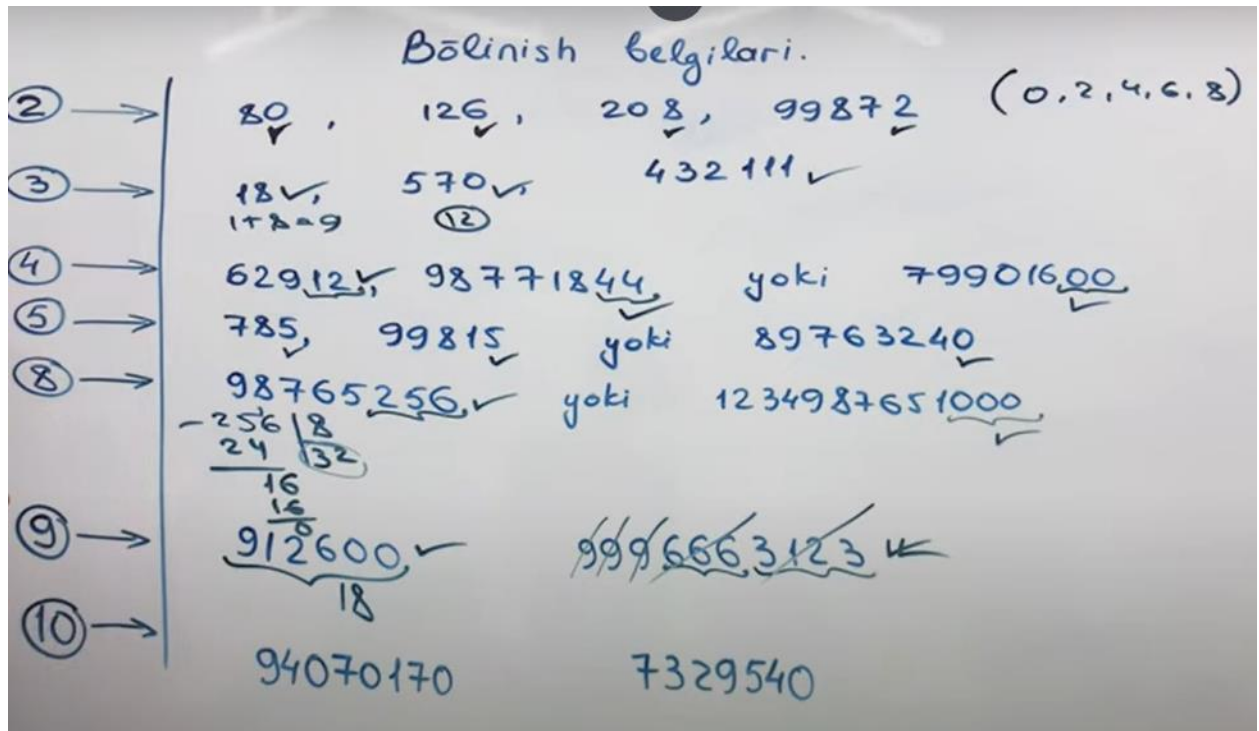 Bōlinish belgilari.
2 → 80, 126, 208, 99872 (0,2,4,6,8)
3 → 18 ✓, 570 ✓, 432111 ✓
1+8=9 12
4 → 62912 ✓, 98771844, yoki 79901600
5 → 785, 99815 yoki 89763240
8 → 98765256, ✓ yoki 1234987651000
-256 | 8
24 32
16
16
0
9 → 912600, ✓ 9996663123 ✓
18
10 →
94070170 7329540